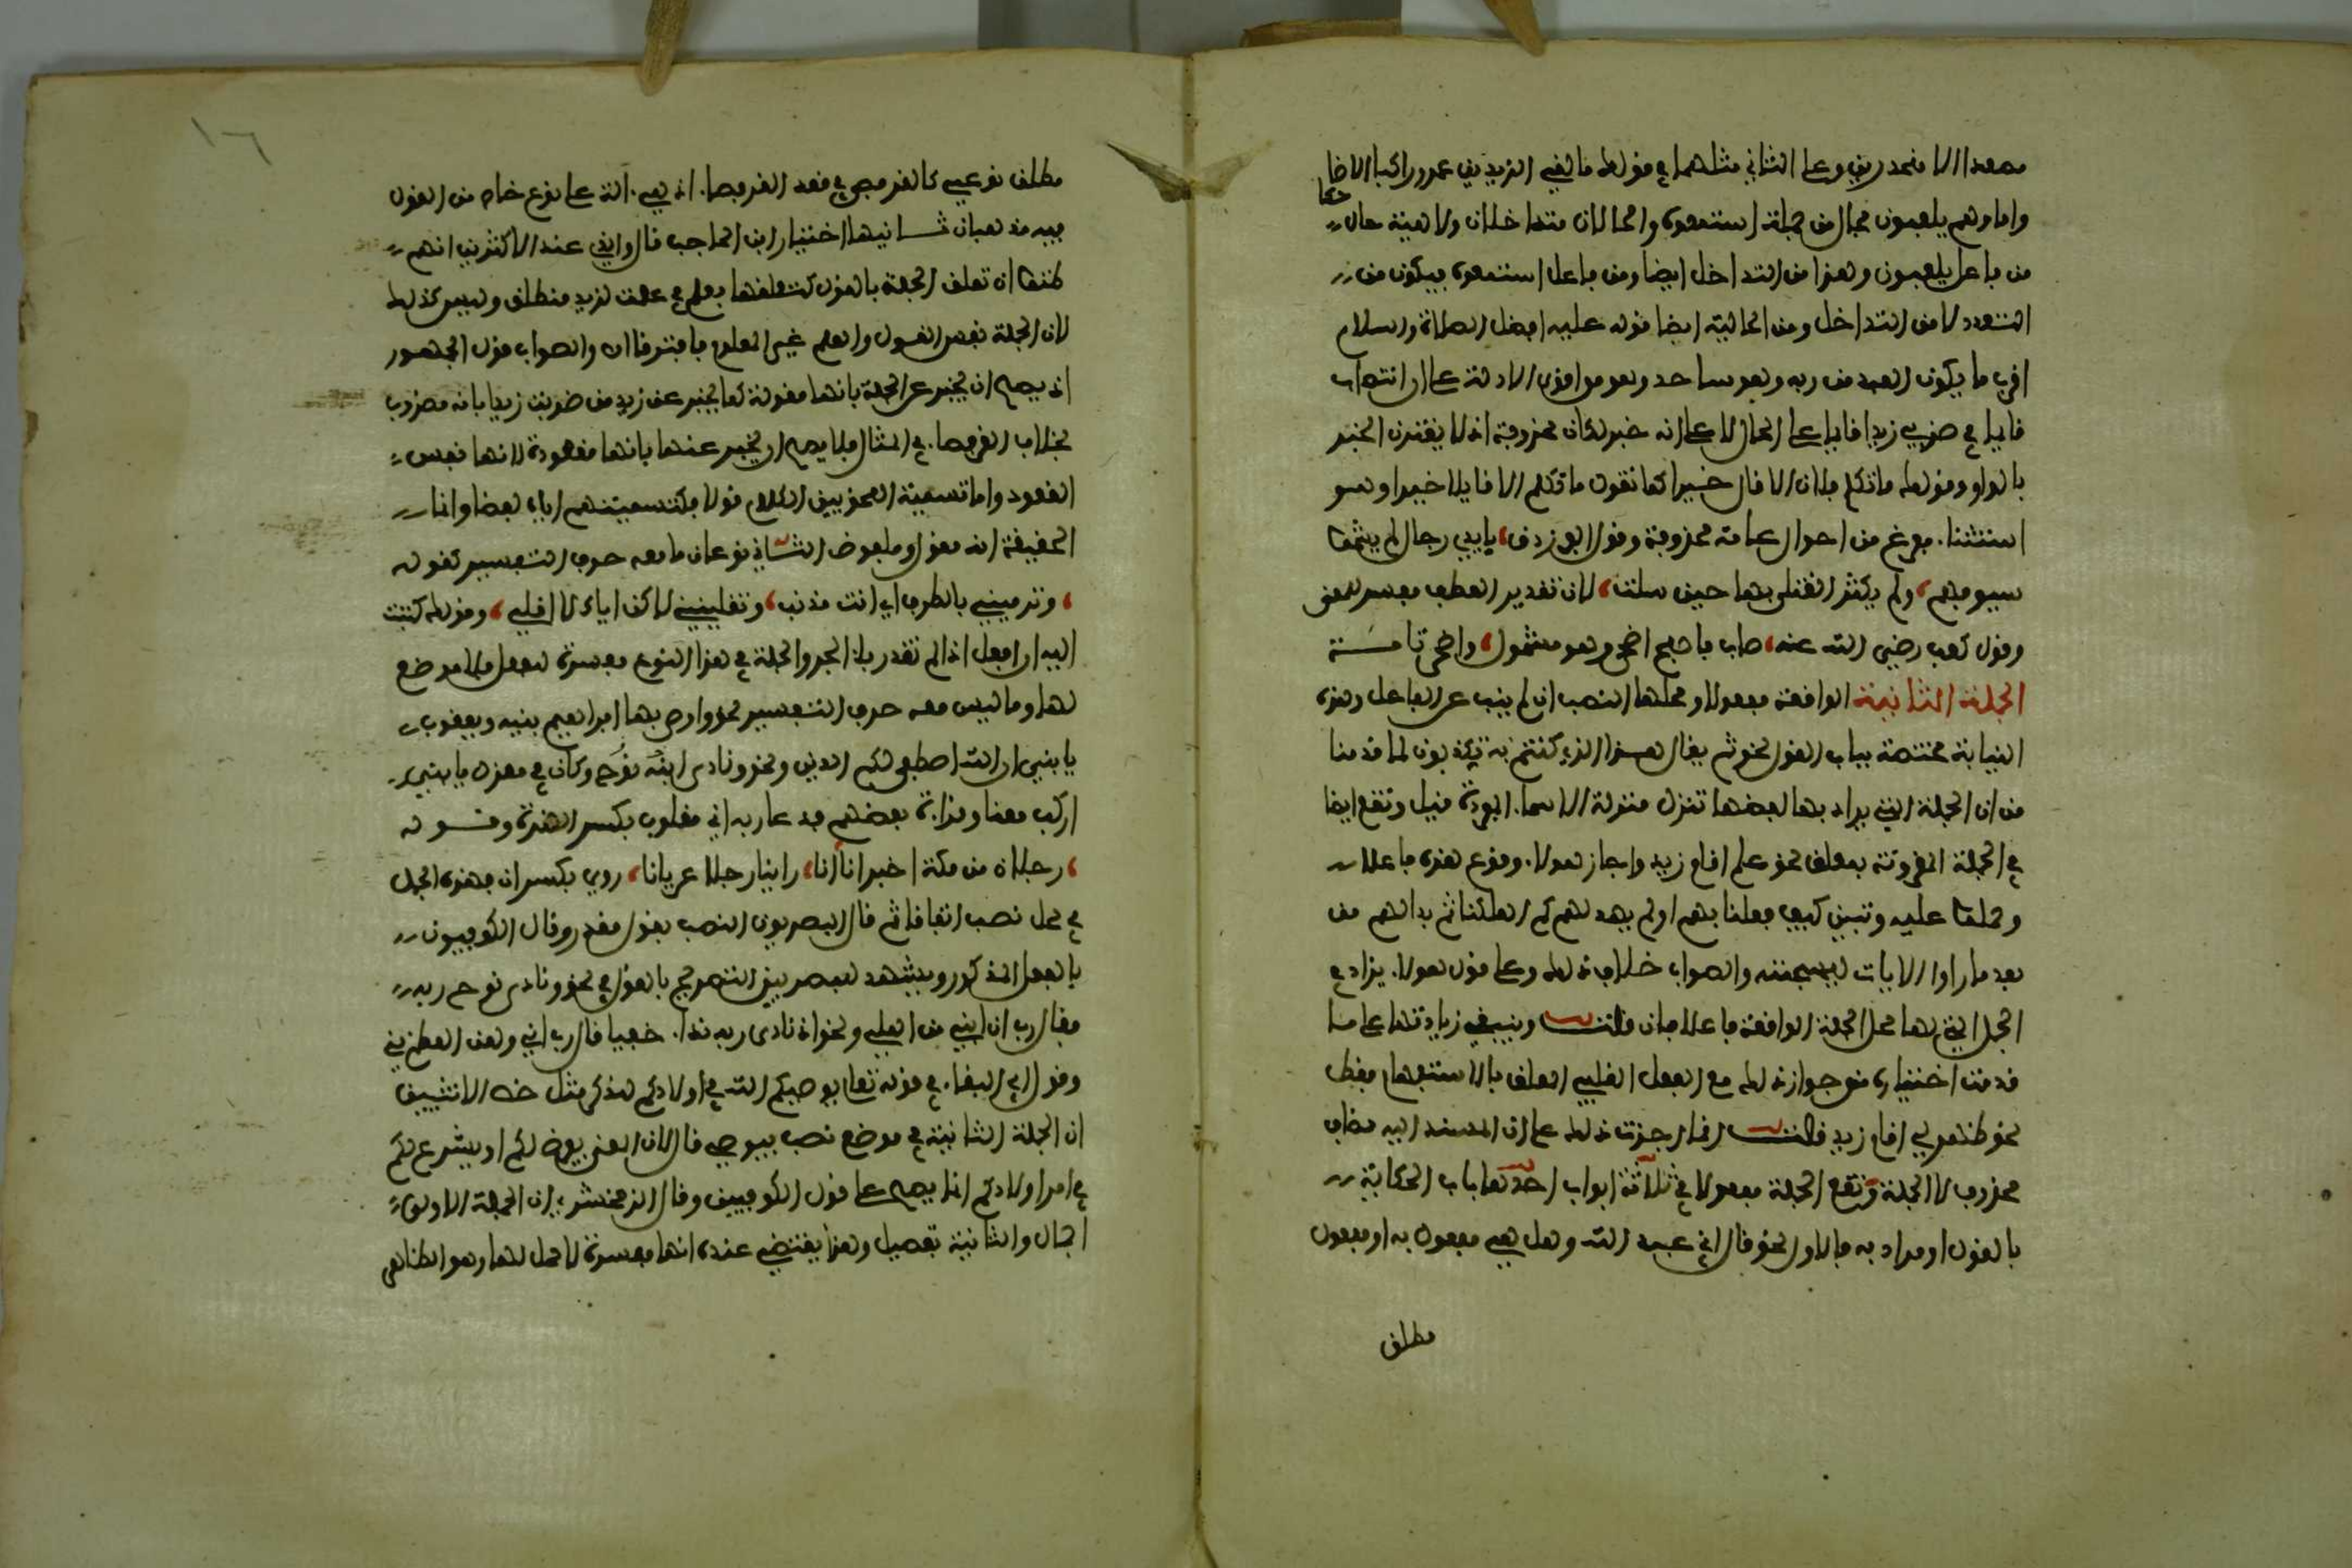 مصعدا الا منحدرين وعلى الثاني مثلهما في قولك ما لقي الزيدين عمرو راكبا الا ضاحكا
واما وهم يلعبون فحال من جملة استمعوه والحالان متداخلان ولاهية حال
من فاعل يلعبون وهذا من التداخل ايضا ومن فاعل استمعوه فيكون من
التعدد لا من التداخل ومن الحالية ايضا قوله عليه افضل الصلاة والسلام
اقرب ما يكون العبد من ربه وهو ساجد وهو من اقوى الادلة على ان انتصاب
قايما في ضربي زيدا قايما على الحال لا على انه خبر لكان محذوفة اذ لا يقترن الخبر
بالواو وقولك ما تكلم فلان الا قال خيرا كما تقول ما تكلم الا قايلا خيرا وهو
استثناء مفرغ من احوال عامة محذوفة وقول الفرزدق، بايدي رجال لم يشيموا
سيوفهم، ولم يكثر القتلى بها حين سلت، لان تقدير العطف مفسر للمعنى
وقول كعب رضي الله عنه، صاف بابطح اضحى وهو مشمول، واضحى تامة
الجملة الثانية الواقعة مفعولا ومحلها النصب ان لم ينب عن الفاعل وهذه
النيابة مختصة بباب القول نحو ثم يقال هذا الذي كنتم به تكذبون لما قدمنا
من ان الجملة التي يراد بها لفظها تنزل منزلة الاسماء المفردة قيل وتقع ايضا
في الجملة المقرونة بمعلق نحو علم اقام زيد واجاز هولاء وقوع هذه فاعلا
وحملوا عليه وتبين كيف فعلنا بهم اولم يهد لهم كم اهلكنا ثم بدا لهم من
بعد ما راوا الايات ليسجننه والصواب خلاف ذلك وعلى قول هولاء يزاد في
الجمل التي لها محل الجملة الواقعة فاعلا فان قلت وينبغي زيادتها على ما
قدمت اختياره من جواز ذلك مع الفعل القلبي المعلق بالاستفهام فقط
نحو ظهر لي اقام زيد قلت انما اجزت ذلك على ان المسند اليه مضاف
محذوف لا الجملة وتقع الجملة مفعولا في ثلاثة ابواب احدها باب الحكاية
بالقول او مرادفه فالاول نحو قال اني عبد الله وهل هي مفعول به او مفعول
مطلق
مطلق نوعي كالقرفصى في قعد القرفصاء اذ هي دالة على نوع خاص من القول
فيه مذهبان ثانيهما اختيار ابن الحاجب قال والذي عند الاكثرين انهم
ظنوا ان تعلق الجملة بالقول كتعلقها بعلم في علمت لزيد منطلق وليس كذلك
لان الجملة نفس القول والعلم غير المعلوم فافترقا ان والصواب قول الجمهور
اذ يصح ان يخبر عن الجملة بانها مقولة كما يخبر عن زيد من ضربت زيدا بانه مضروب
بخلاف القرفصاء في المثال فلا يصح ان يخبر عنها بانها مقعودة لانها نفس
القعود واما تسمية النحويين الكلام قولا فكتسميتهم اياه لفظا وانما
الحقيقة انه مقول وملفوظ الثاني نوعان ما معه حرف التفسير كقوله
، وترمينني بالطرف اي انت مذنب، وتقلينني لكن اياك لا اقلي، وقولك كتبت
اليه ان افعل اذا لم تقدر باء الجر والجملة في هذا النوع مفسرة للفعل فلا موضع
لها وما ليس معه حرف التفسير نحو ووصى بها ابراهيم بنيه ويعقوب
يا بني ان الله اصطفى لكم الدين ونحو ونادى ابنه نوح وكان في معزل يا بني
اركب معنا وقراءة بعضهم فدعا ربه اني مغلوب بكسر الهمزة وقوله
، رجلان من مكة اخبرانا، انا راينا رجلا عريانا، روي بكسر ان فهذه الجمل
في محل نصب اتفاقا ثم قال البصريون النصب بقول مقدر وقال الكوفيون
بالفعل المذكور ويشهد للبصريين التصريح بالقول في نحو ونادى نوح ربه
فقال رب ان ابني من اهلي ونحو اذ نادى ربه نداء خفيا قال رب اني وهن العظم مني
وقول ابي البقاء في قوله تعالى يوصيكم الله في اولادكم للذكر مثل حظ الانثيين
ان الجملة الثانية في موضع نصب بيوصي قال لان المعنى يفرض لكم او يشرع لكم
في امر اولادكم انما يصح على قول الكوفيين وقال الزمخشري ان الجملة الاولى
اجمال والثانية تفصيل وهذا يقتضي عنده انها مفسرة لا محل لها وهو الظاهر